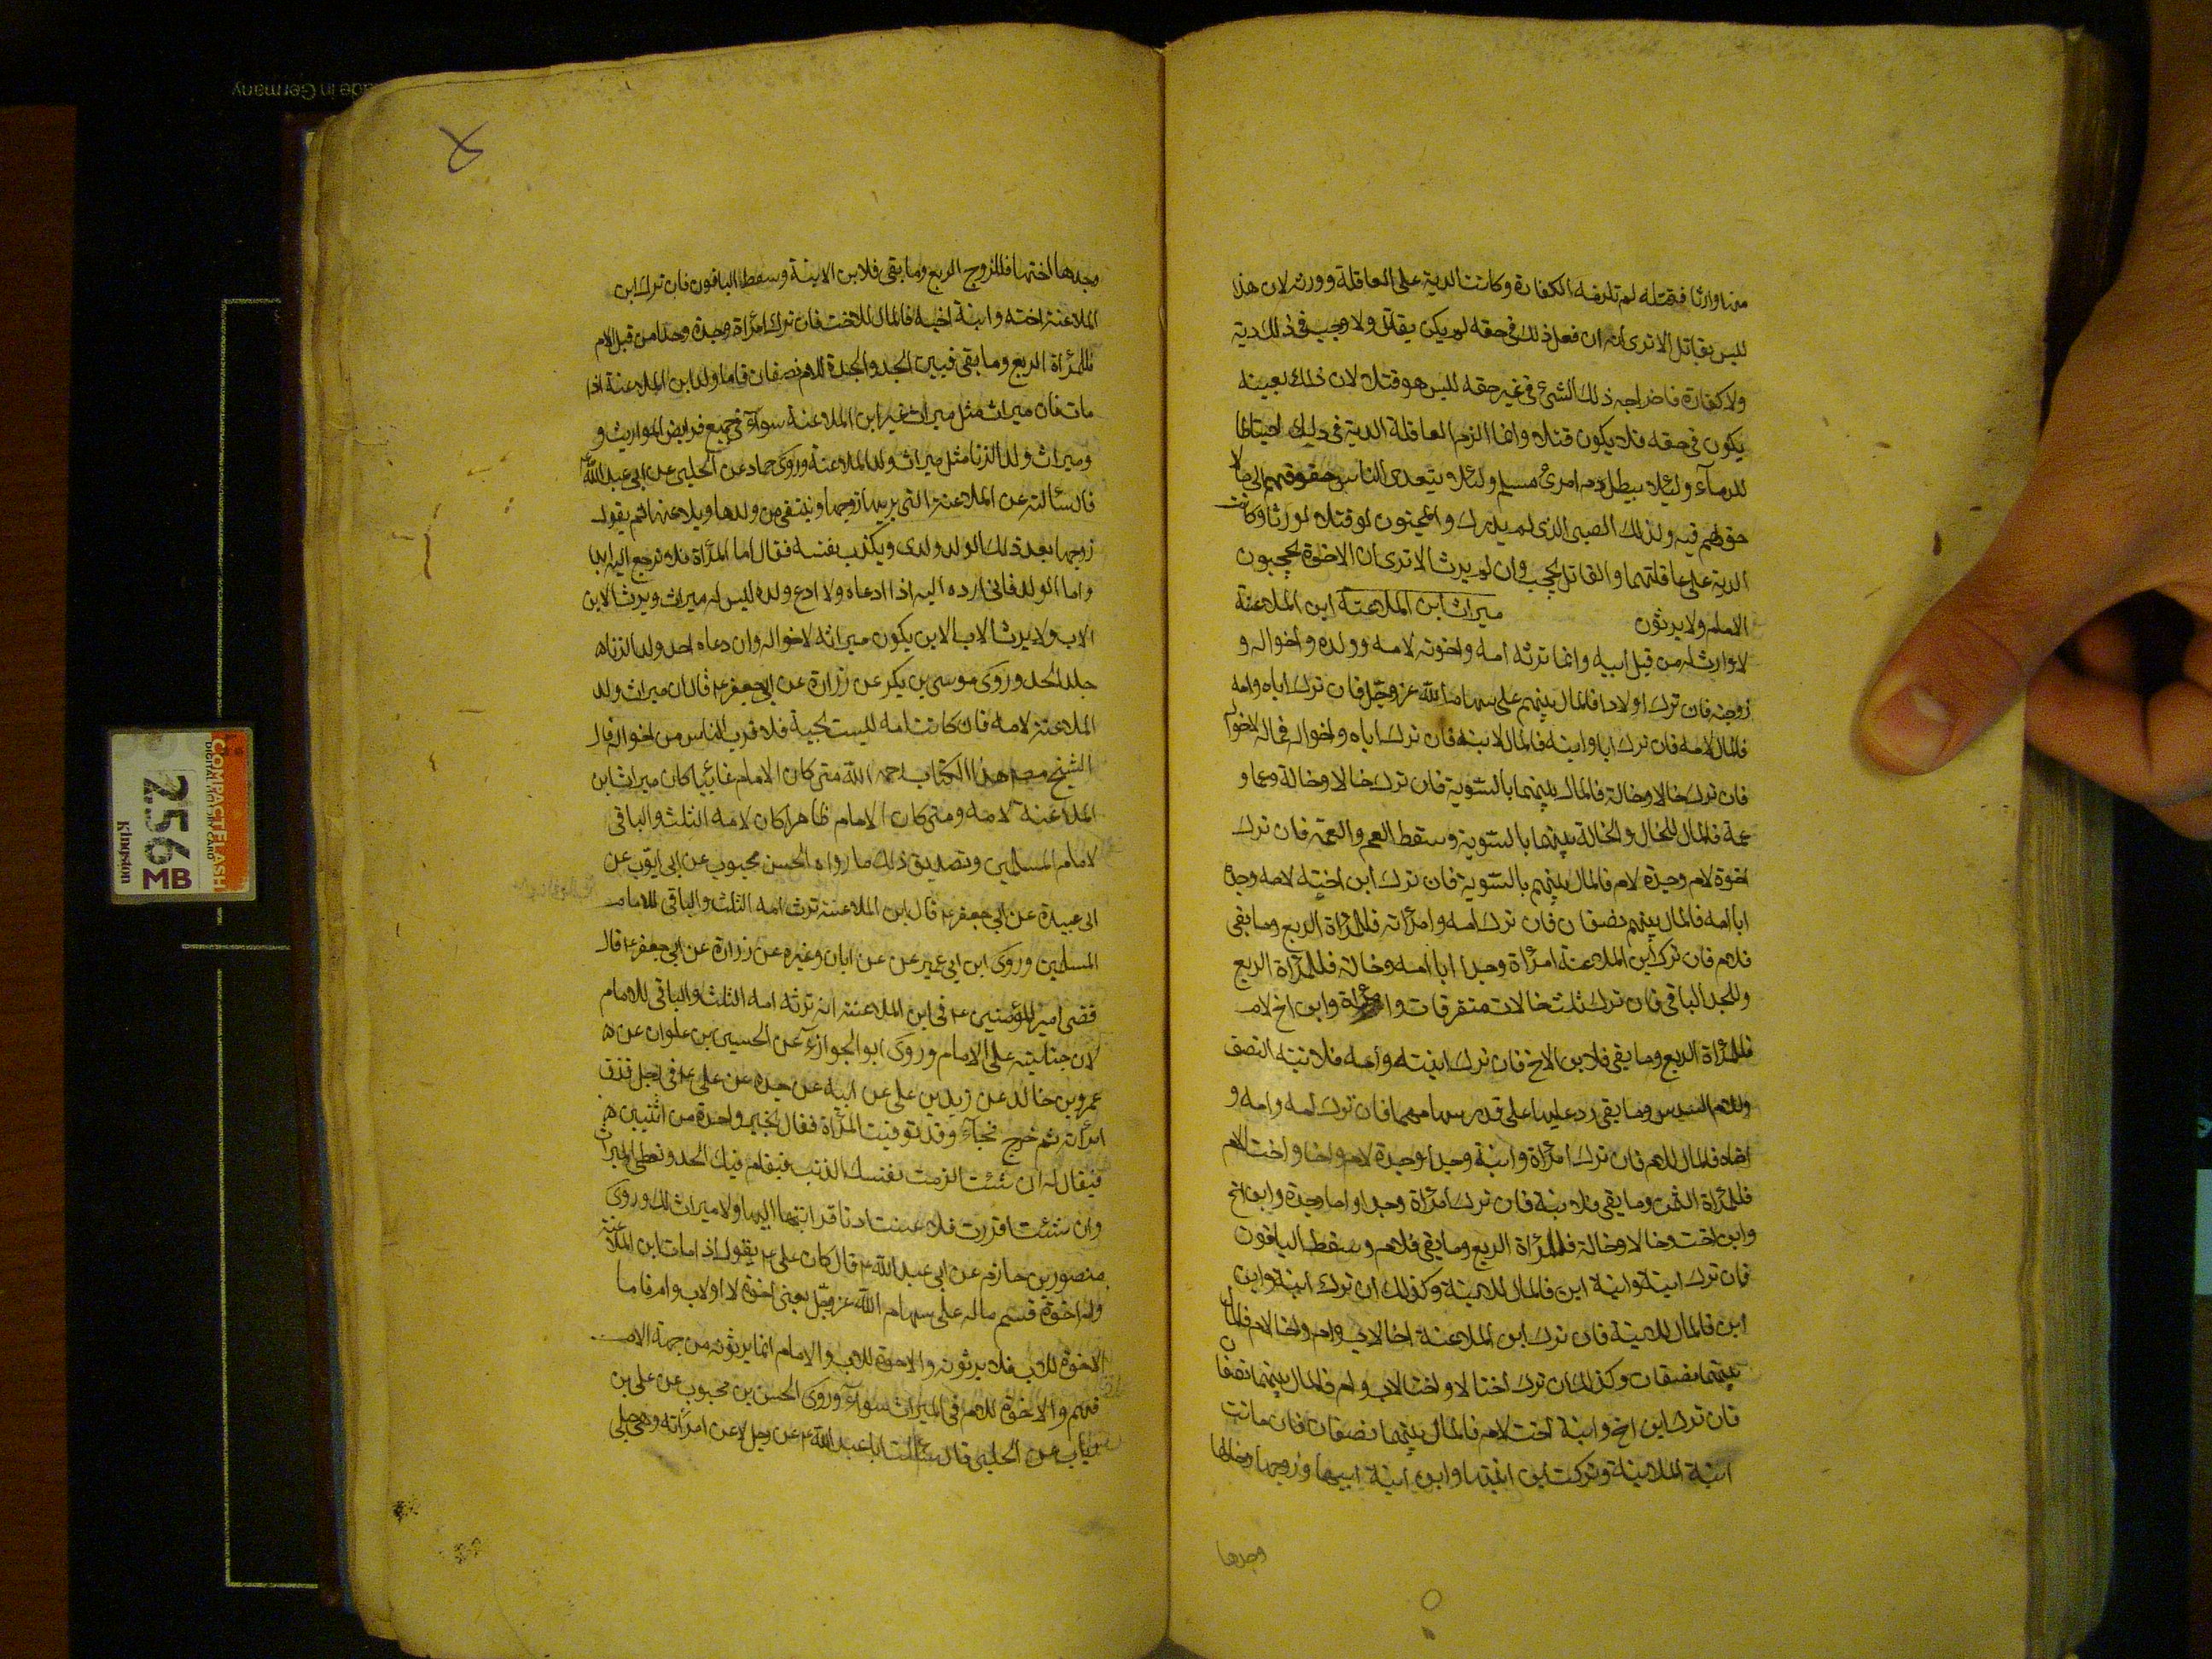 منها وارثا فقتله لم تلزمه الكفارة وكانت الدية على العاقلة وورثه لان هذا
ليس بقاتل الا ترى انه ان فعل ذلك فى حقه لم يكن يقاتل ولا وجب فى ذلك دية
ولا كفارة فاخراجه ذلك الشئ فى غير حقه ليس هو قتلا لان ذلك بعينه
يكون فى حقه فلا يكون قتلا وانما الزم العاقلة الدية فى ذلك احتياطا
للدماء ولئلا يبطل دم امرئ مسلم ولئلا يتعدى الناس حقوقهم الى ما لا
حق لهم فيه ولذلك الصبى الذى لم يدرك والمجنون لو قتلا لورثا وكانت
الدية على عاقلتهما والقاتل يحجب وان لم يرث الا ترى ان الاخوة يحجبون
الام ولا يرثون ميراث ابن الملاعنة ابن الملاعنة
لا وارث له من قبل ابيه وانما ترثه امه واخوته لامه وولده واخواله و
زوجته فان ترك اولادا فالمال بينهم على سهام الله عز وجل فان ترك اباه وامه
فالمال لامه فان ترك ابا وابنه فالمال لابنه فان ترك اباه واخواله فماله لاخواله
فان ترك خالا وخالة فالمال بينهما بالسوية فان ترك خالا وخالة وعما و
عمة فالمال للخال والخالة بينهما بالسوية وسقط العم والعمة فان ترك
اخوة لام وجدة لام فالمال بينهم بالسوية فان ترك ابن اخته لامه وجده
ابا امه فالمال بينهم نصفان فان ترك امه وامرأته فللمرأة الربع وما بقى
فللام فان ترك ابن الملاعنة امرأة وجدا ابا امه وخالة فللمرأة الربع
وللجد الباقى فان ترك ثلث خالات متفرقات وامرأة وابن اخ لام
فللمرأة الربع وما بقى فلابن الاخ فان ترك ابنته وامه فلابنته النصف
وللام السدس وما بقى رد عليها على قدر سهامهما فان ترك امه و
اخاه فالمال للام فان ترك امرأة وابنة وجدا وجدة لام واخا واختا لام
فللمرأة الثمن وما بقى فلابنة فان ترك امرأة وجدا واما وجدة وابن اخ
وابن اخت وخالا وخالة فللمرأة الربع وما بقى فللام وسقط الباقون
فان ترك ابنة وابنة ابن فالمال للابنة وكذلك ان ترك ابنة وابن
ابن فالمال للابنة فان ترك ابن الملاعنة اخا لاب وام واخا لام فالمال
بينهما نصفان وكذلك ان ترك اختا لام واختا لاب وام فالمال بينهما نصفان
فان ترك ابن اخ وابنة اخت لام فالمال بينهما نصفان فان ماتت
ابنة الملاعنة وتركت ابن ابنتها وابن ابنة ابنها وزوجها وخالها
وجدها
وجدها اختها فللزوج الربع وما بقى فلابن الابنة وسقط الباقون فان ترك ابن
الملاعنة اخته وابنة اخيه فالمال للاخت فان ترك امرأة وجدة وجدا من قبل الام
فللمرأة الربع وما بقى فبين الجد والجدة للام نصفان فاما ولد ابن الملاعنة اذا
مات فان ميراثه مثل ميراث غير ابن الملاعنة سواء فى جميع فرايض المواريث و
وميراث ولد الزنا مثل ميراث ولد الملاعنة وروى حماد عن الحلبى عن ابى عبد الله
قال سألته عن الملاعنة التى يرميها زوجها وينتفى من ولدها ويلاعنها ثم يقول
زوجها بعد ذلك الولد ولدى ويكذب نفسه فقال اما المرأة فلا ترجع اليه ابدا
واما الولد فانى ارده اليه اذا ادعاه ولا ادع ولده ليس له ميراث ويرث الابن
الاب ولا يرث الاب الابن يكون ميراثه لاخواله وان دعاه احد ولد الزنا
جلد الحد وروى موسى بن بكر عن زرارة عن ابى جعفر ع قال ان ميراث ولد
الملاعنة لامه فان كانت امه ليست بحية فلاقرب الناس من اخواله قال
الشيخ مص هذا الكتاب رحمه الله متى كان الامام غائبا كان ميراث ابن
الملاعنة لامه ومتى كان الامام ظاهرا كان لامه الثلث والباقى
لامام المسلمين وتصديق ذلك ما رواه الحسن محبوب عن ابى ايوب عن
ابى عبيدة عن ابى جعفر ع قال ابن الملاعنة ترث امه الثلث والباقى للامام
المسلمين وروى ابن ابى عمير عن عن ابان وغيره عن زرارة عن ابى جعفر ع قال
قضى امير المؤمنين ع فى ابن الملاعنة انه ترثه امه الثلث والباقى للامام
لان جنايته على الامام وروى ابو الجوزاء عن الحسين بن علوان عن
عمرو بن خالد عن زيد بن على عن ابيه عن جده عن على ع فى رجل قذف
امرأته ثم خرج فجاء وقد توفيت المرأة فقال يخير واحدة من اثنين
فيقال له ان شئت الزمت نفسك الذنب فيقام فيك الحد وتعطى الميراث
وان شئت اقررت فلاعنت ادنا قرابتها اليها ولا ميراث لك وروى
منصور بن حازم عن ابى عبد الله ع قال كان على ع يقول اذا مات ابن الملاعنة
وله اخوة قسم ماله على سهام الله عز وجل يعنى اخوة لام او لاب وام فاما
الاخوة للاب فلا يرثونه والاخوة للاب والام انما يرثونه من جهة الام
فهم والاخوة للام فى الميراث سواء وروى الحسن بن محبوب عن على بن
رئاب عن الحلبى قال سألت ابا عبد الله ع عن رجل لاعن امرأته وهى حبلى
Made in Germany
COMPACTFLASH
DIGITAL MEDIA CARD
256
MB
Kingston